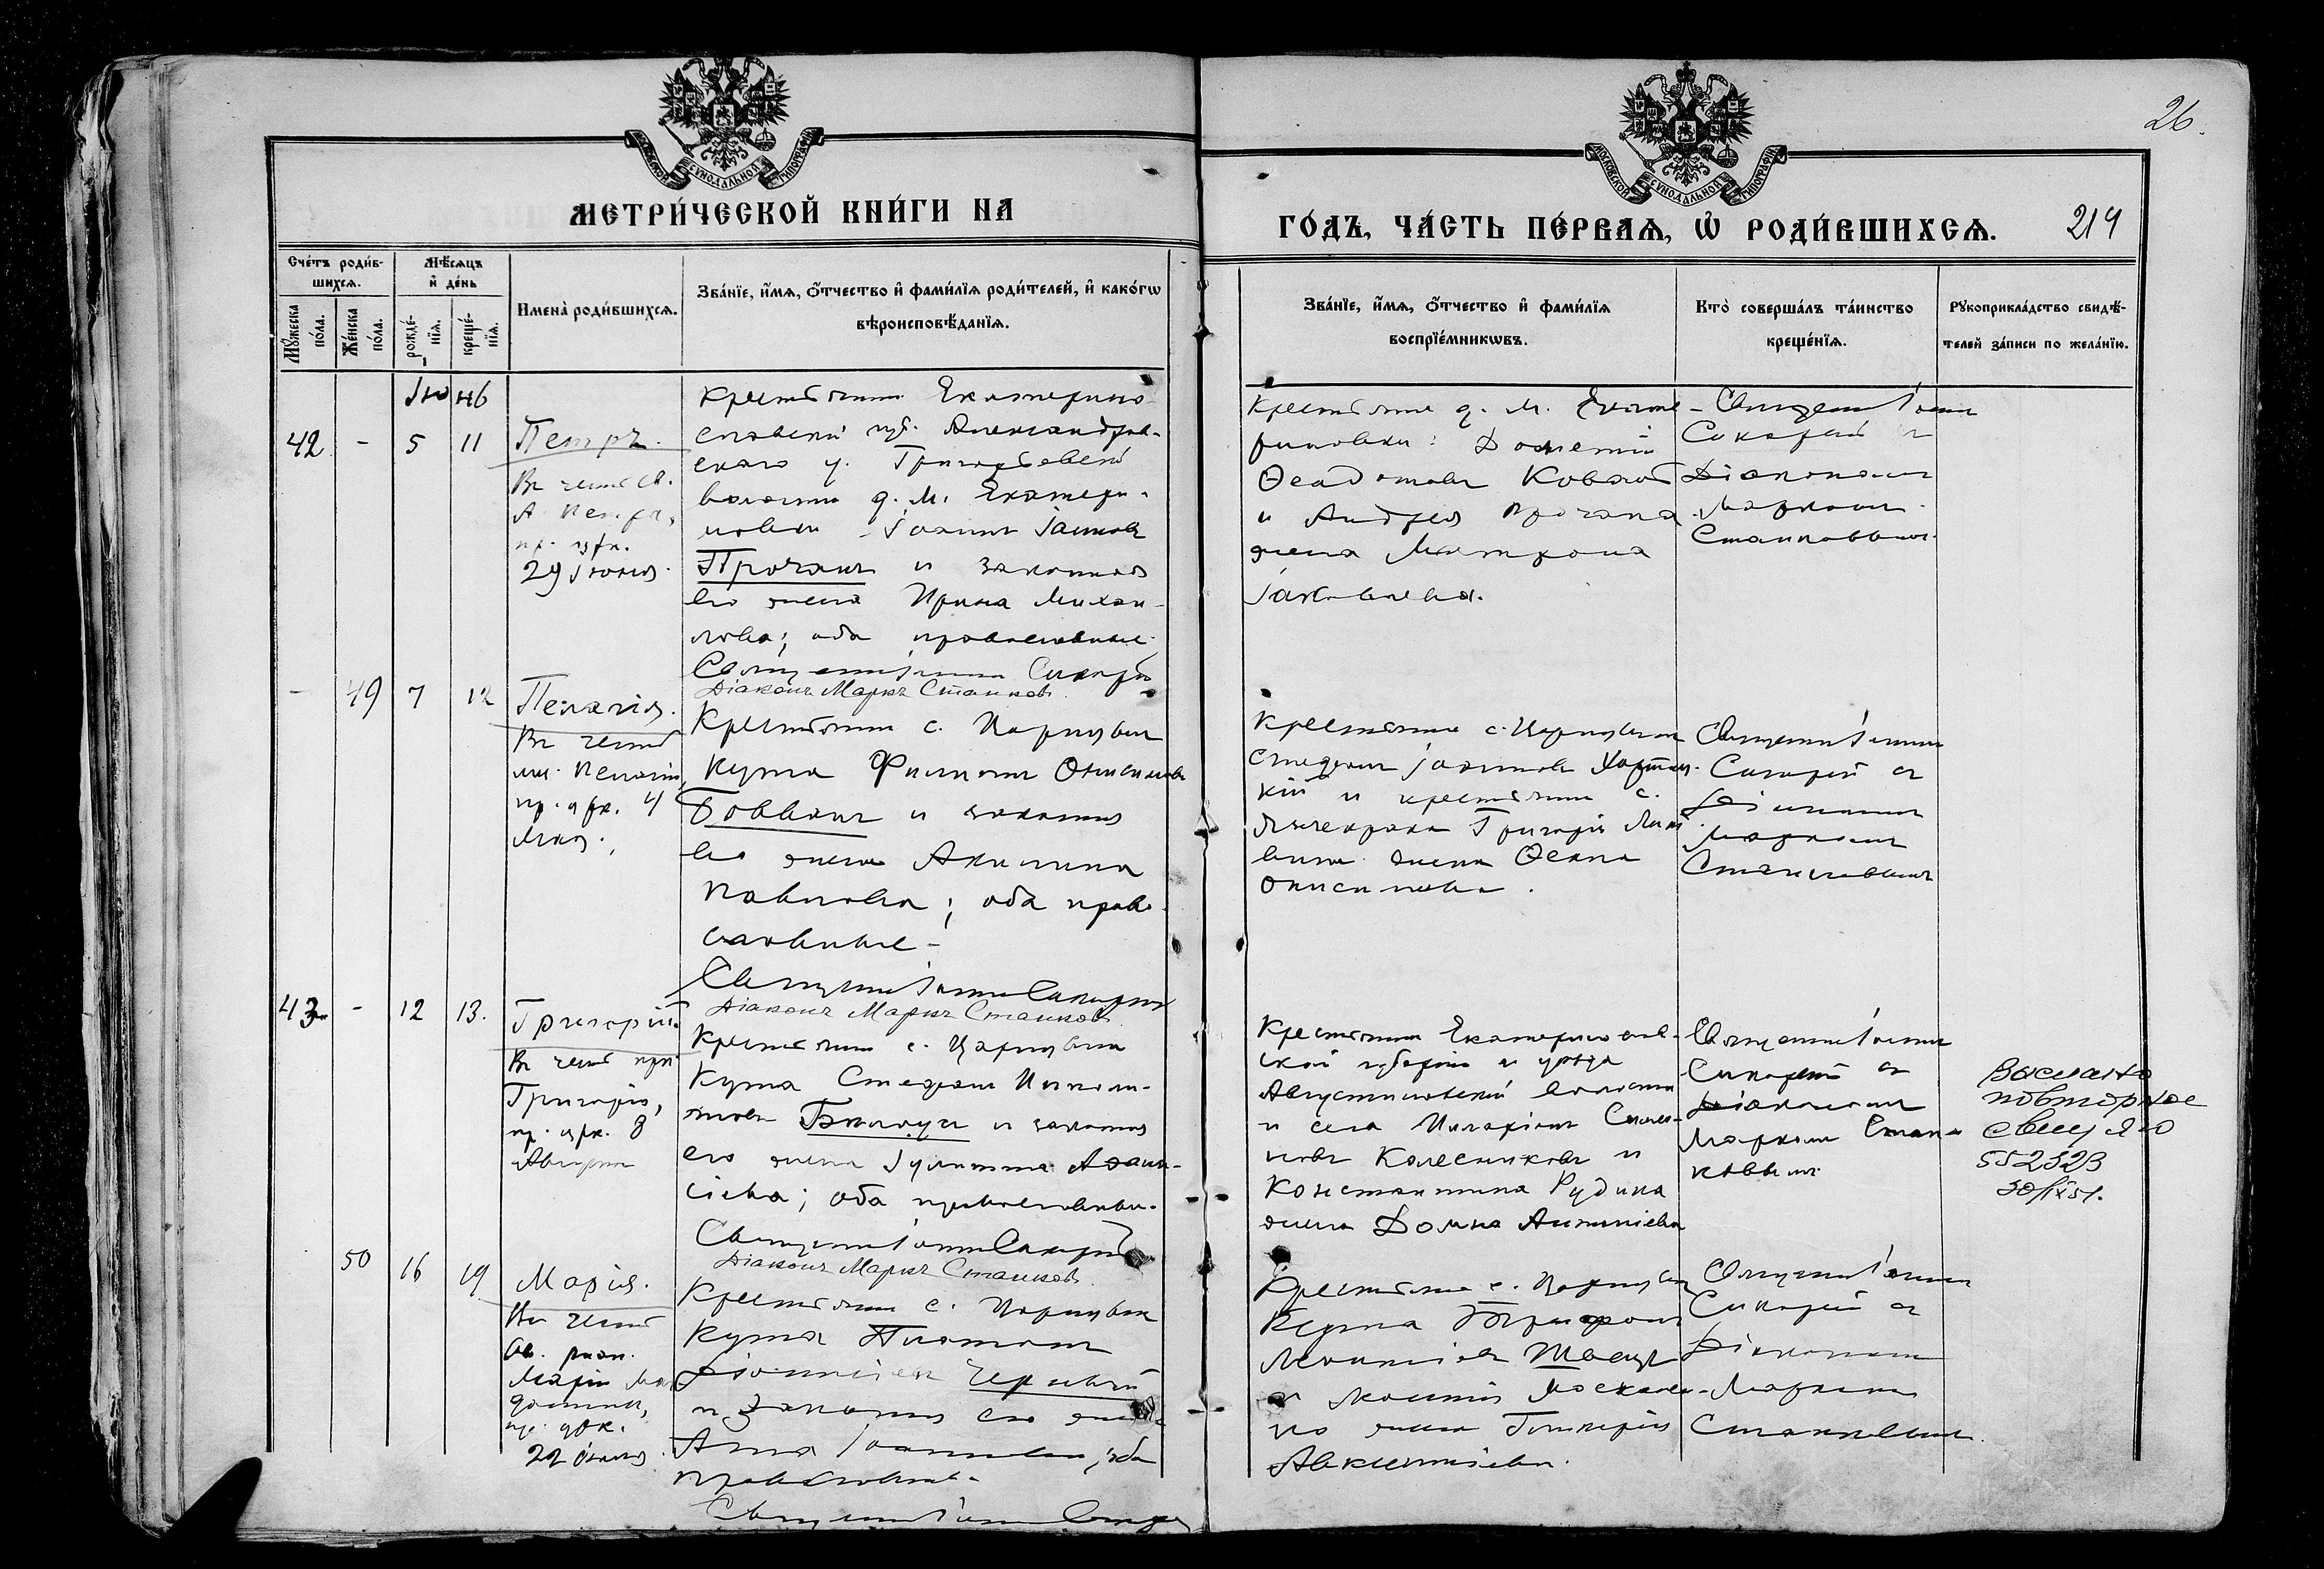 26.
МОСКОВСКОЙ СѴНОДАЛЬНОЙ ТИПОГРАФІИ
МОСКОВСКОЙ СѴНОДАЛЬНОЙ ТИПОГРАФІИ
МЕТРИ́ЧЕСКОЙ КНИ́ГИ НА
ГО́ДЪ, ЧА́СТЬ ПЕ́РВАѦ, Ѡ҆ РОДИ́ВШИХСѦ.
214
Сче́тъ роди́в-
шихсѧ.
Мꙋ́жеска
по́ла.
Же́нска
по́ла.
Мѣ́сѧцъ
и҆ де́нь
рожде́-
нїѧ.
креще́-
нїѧ.
Имена̀ роди́вшихсѧ.
Зва́нїе, и҆́мѧ, ѻ҆́тчество и҆ фами́лїѧ роди́телей, и҆ како́гѡ
вѣроисповѣ́данїѧ.
Зва́нїе, и҆́мѧ, ѻ҆́тчество и҆ фами́лїѧ
воспрїе́мникѡвъ.
Кто̀ соверша́лъ та́инство
креще́нїѧ.
Рꙋкоприкла́дство свидѣ́-
телей за́писи по жела́нїю.
Іюнь
42 - 5 11
Петръ.
Въ честь св.
А. Петра,
пр. црк.
29 Іюня.
Крестьянинъ Екатерино-
славской губ. Александров-
скаго у. Григорьевской
волости д. М. Екатери-
новки Іоаннъ
Прочанъ и законная
его жена Ирина Михаи-
лова; оба православные.
Священникъ
Діаконъ Маркъ Станковъ.
Крестьяне д. М. Екате-
риновки: Дометій
Ѳеодотовъ Коваль
и Андрея Прочана
жена Матрона
Іаковлева.
Священникъ Іоаннъ
съ
Діакономъ
Маркомъ
Станковымъ.
- 49 7 12
Пелагія.
Въ честь
мц. Пелагіи,
пр. црк. 4
Мая.
Крестьянинъ с. Царицына
Кута Филиппъ Онисимовъ
Бовванъ и законная
его жена Акилина
Павлова; оба право-
славные.
Священникъ Іоаннъ
Діаконъ Маркъ Станковъ.
Крестьянинъ с. Царицына
Стефанъ Іоанновъ
и крестьянина с.
Григорія
жена Ѳекла
Онисимова.
Священникъ Іоаннъ
съ
Діакономъ
Маркомъ
Станковымъ
43 - 12 13.
Григорій.
Въ честь прп.
Григорія,
пр. црк. 8
Августа
Крестьянинъ с. Царицына
Кута Стефанъ Ипполи-
товъ и законная
его жена Іулитта Аѳана-
сіева; оба православные.
Священникъ Іоаннъ
Діаконъ Маркъ Станковъ.
Крестьяне Екатеринослав-
ской губерніи и уѣзда
Августиновской волости
и села Иларіонъ
Колесниковъ и
Константина Рудика
жена Домна
Священникъ Іоаннъ
съ
Діакономъ
Маркомъ Стан-
ковымъ.
Выслано
повторное
свид ЯЮ
552323
30/IX 51.
50 16 19
Марія.
Въ честь
св. равн.
Маріи Маг-
далины,
пр. црк.
22 Іюля.
Крестьянинъ с. Царицына
Кута Платонъ
Діонисіевъ
и законная его жена
Анна Іоаннова; оба
православные.
Священникъ Іоаннъ
Крестьяне с. Царицына
Кута Трифонъ
Леонтіевъ Швецъ
и
жена Гликерія
Авксентіева.
Священникъ Іоаннъ
съ
Діакономъ
Маркомъ
Станковымъ.